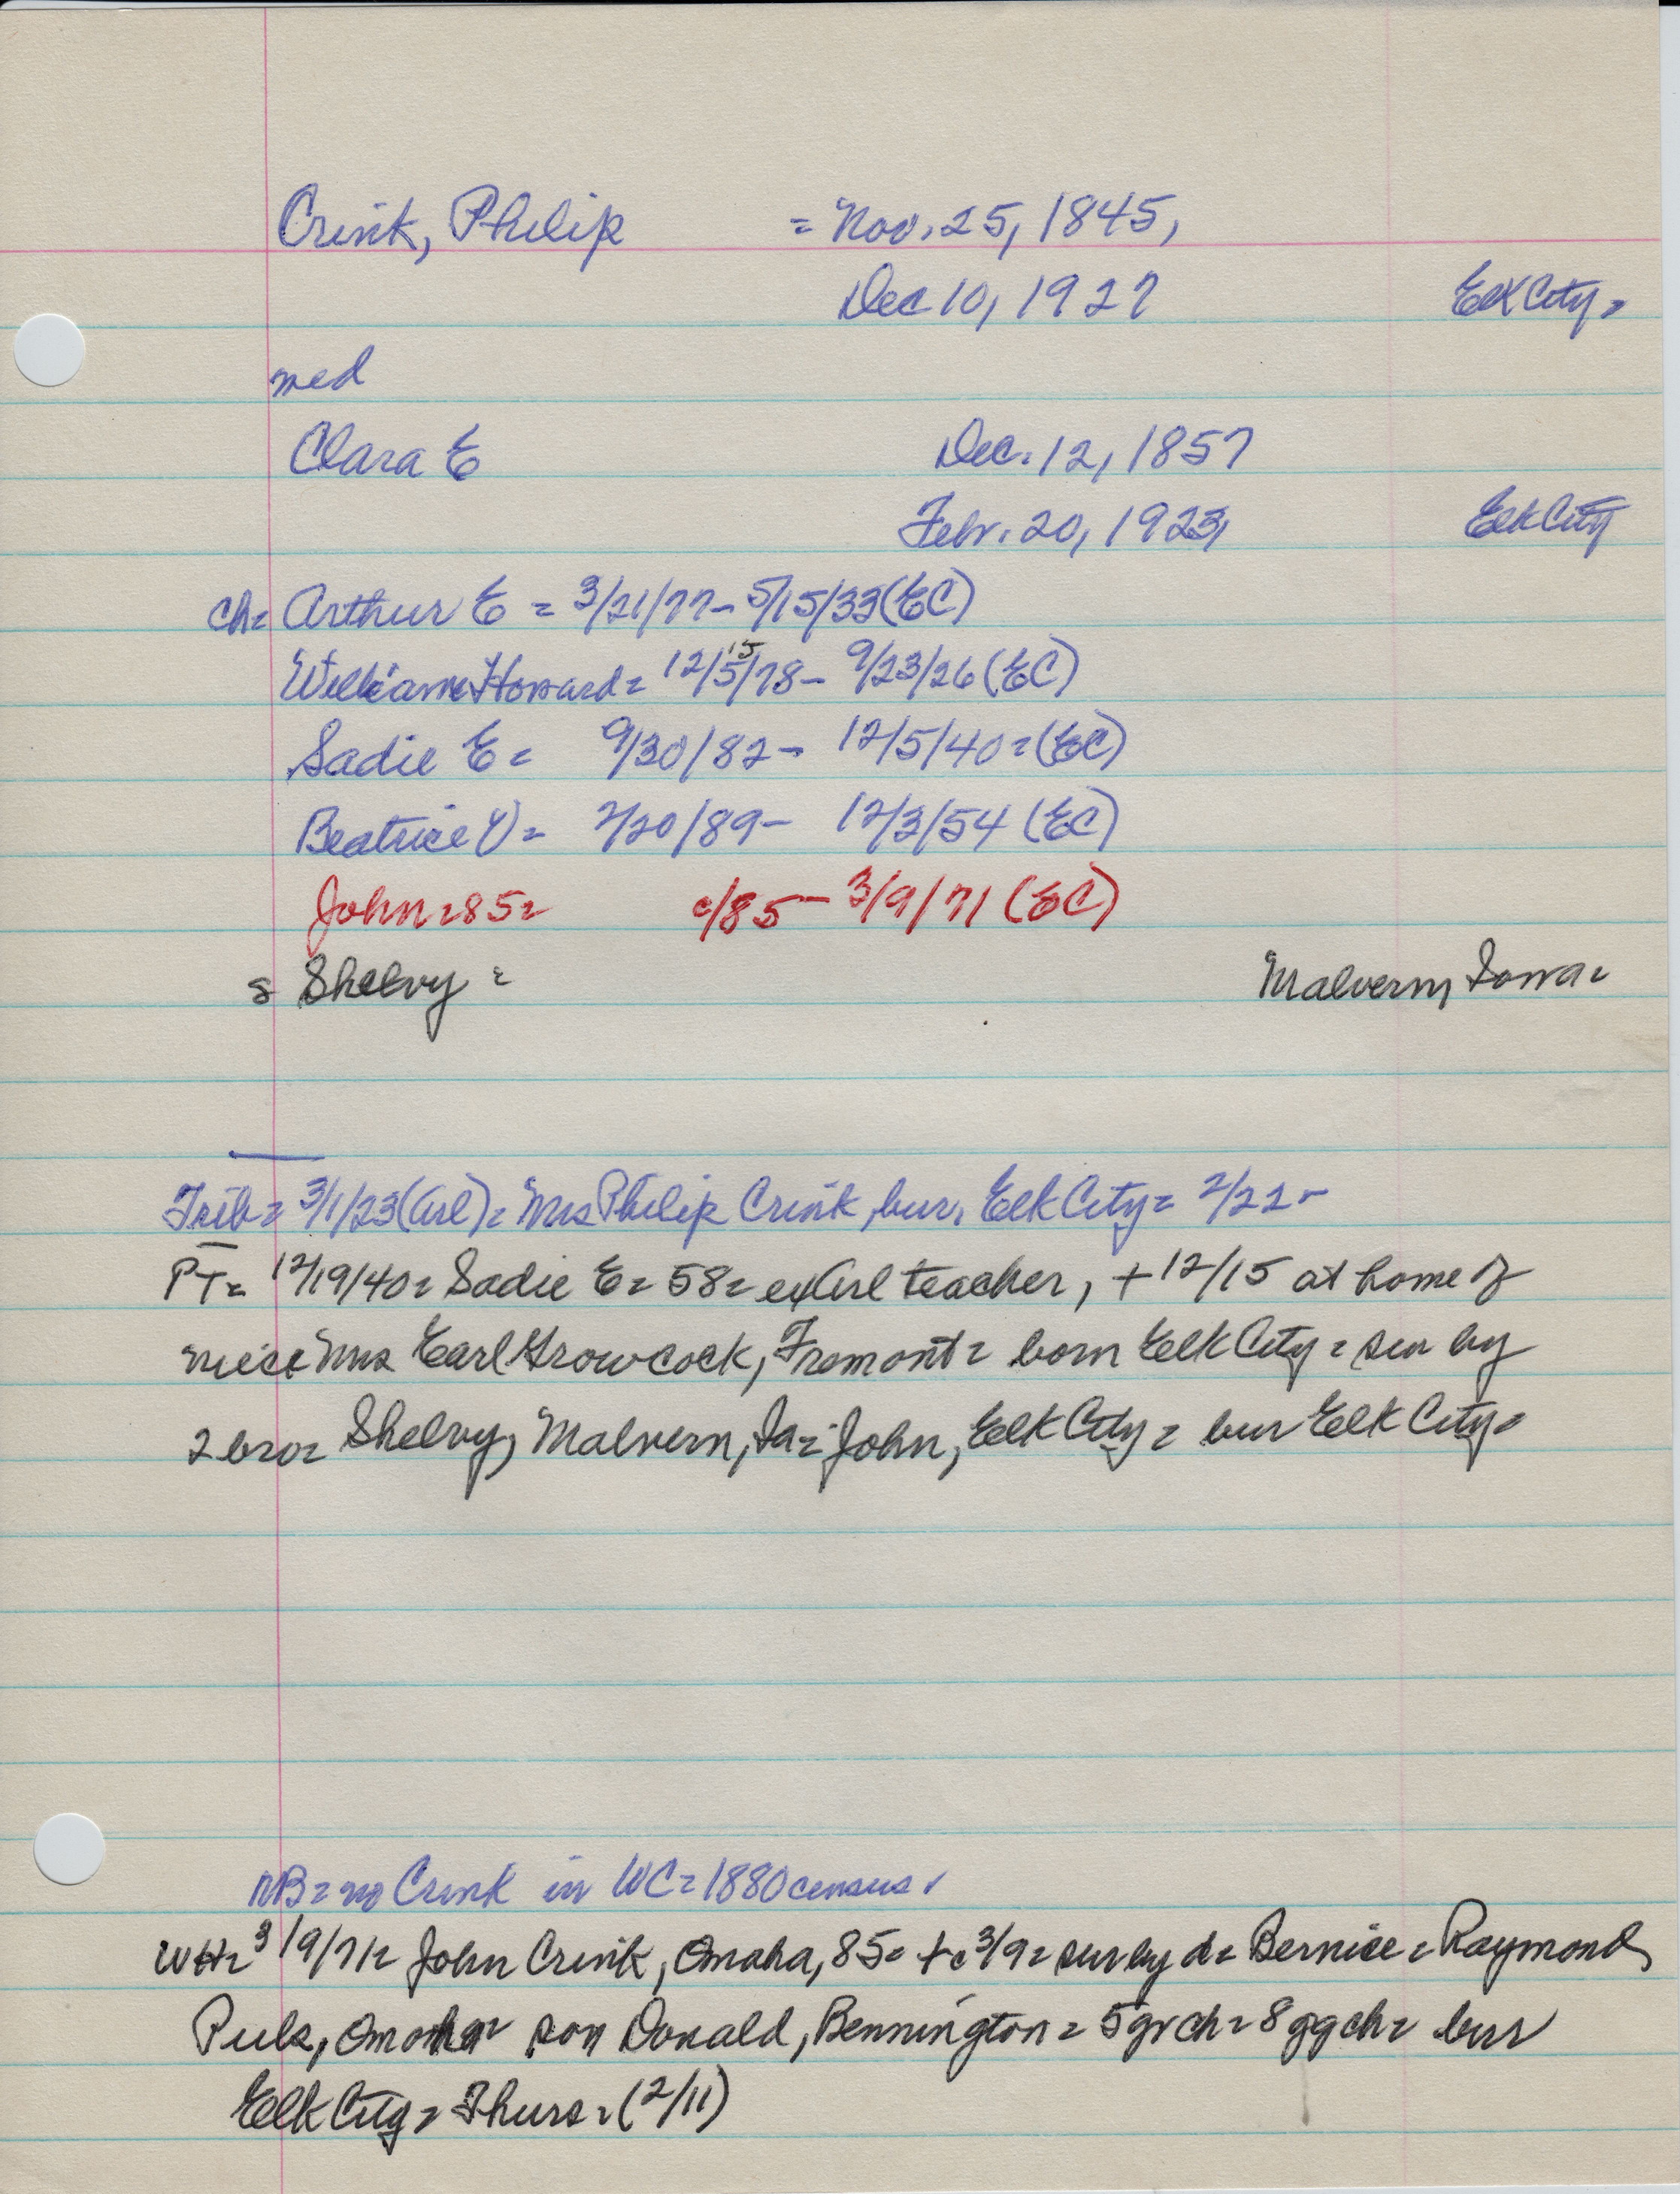 Crink, Philip = Nov. 25, 1845,
Dec 10, 1927 Elk City =
med
Clara E Dec. 12, 1857
Febr. 20, 1923, Elk City
ch= Arthur E = 3/21/77 - 5/15/33 (EC)
15
William Howard = 12/5/78 - 9/23/26 (EC)
Sadie E = 9/30/82 - 12/5/40 = (EC)
Beatrice V = 2/20/89 - 12/3/54 (EC)
John = 85 = c/85 - 3/9/71 (EC)
s Shelvy = Malvern, Iowa =
Trib = 3/1/23 (Arl) = Mrs Philip Crink, bur. Elk City = 2/22 -
PT = 12/19/40 = Sadie E = 58 = ex Arl teacher, + 12/15 at home of
niece Mrs Earl Growcock, Fremont = born Elk City = sur by
2 bro = Shelvy, Malvern, Ia = John, Elk City = bur Elk City =
NB = no Crink in WC = 1880 census.
WH = 3/9/71 = John Crink, Omaha, 85 = + c 3/9 = sur by d = Bernice = Raymond
Puls, Omaha = son Donald, Bennington = 5 gr ch = 8 ggch = bur
Elk City = Thurs = (2/11)